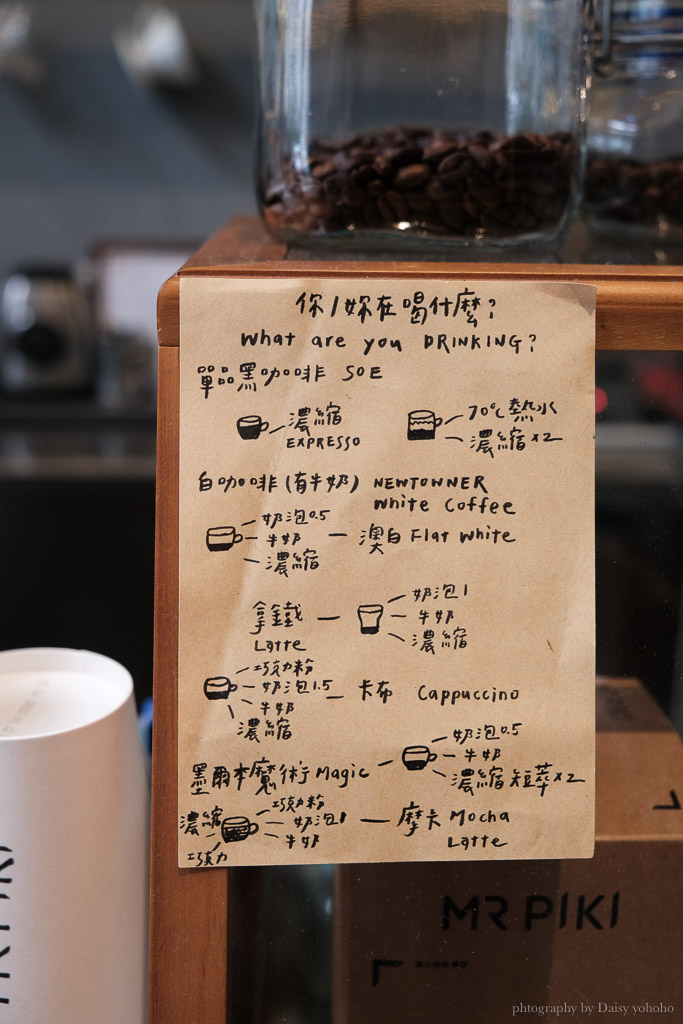 你/妳在喝什麼?
What are you DRINKING?
單品黑咖啡 SOE
濃縮
EXPRESSO
70°C 熱水
濃縮 x2
白咖啡(有牛奶) NEWTOWNER
White Coffee
奶泡0.5
牛奶
濃縮
澳白 Flat White
拿鐵
Latte
奶泡1
牛奶
濃縮
巧克力粉
奶泡1.5
牛奶
濃縮
卡布 Cappuccino
墨爾本魔術 Magic
奶泡0.5
牛奶
濃縮 短萃x2
濃縮
巧克力
巧克力粉
奶泡1
牛奶
摩卡 Mocha
Latte
MR PIKI
photography by Daisy yohoho